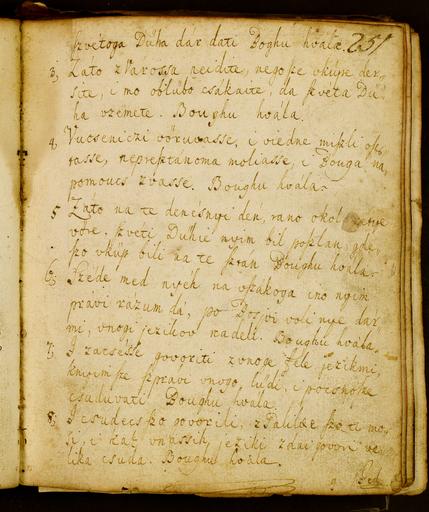 szvetoga Duha dár dati Boghu hvála. 251
3, Zato z'varossa neidite, nego sze vkúpe der-
site, i mo obłubo csakaite, da szveta Du-
ha vzemete. Boughu hvála.
4, Vucseniczi vöruvasse, i viedne miszli
tasse, neprésztanoma moliasse, i Bouga na
pomoucs zvasse. Boughu hvála.
5, Zato na te denesnyi dén, rano okol
vöre. szveti Duhic nyim bil poszlan, gde
szo vküp bili na te sztan Boughu hvála.
6, Széde med nyéh na vszákoga ino nyim
pravi rázum dá, po Bosjoi voli nye dár
mi, vnogi jezikov nadeli. Boughu hvála.
7, I zacsésse govoriti zvnoge féle jezikmi,
szpravi vnogo, ludi, i pocsnosze
csuduvati Boughu hvala
8, I csudecs szo govorili, z'Galilée szo ti mo-
si, i náj vnassih, jeziki zdai govori ve-
lika csuda. Boughu hvála.
9